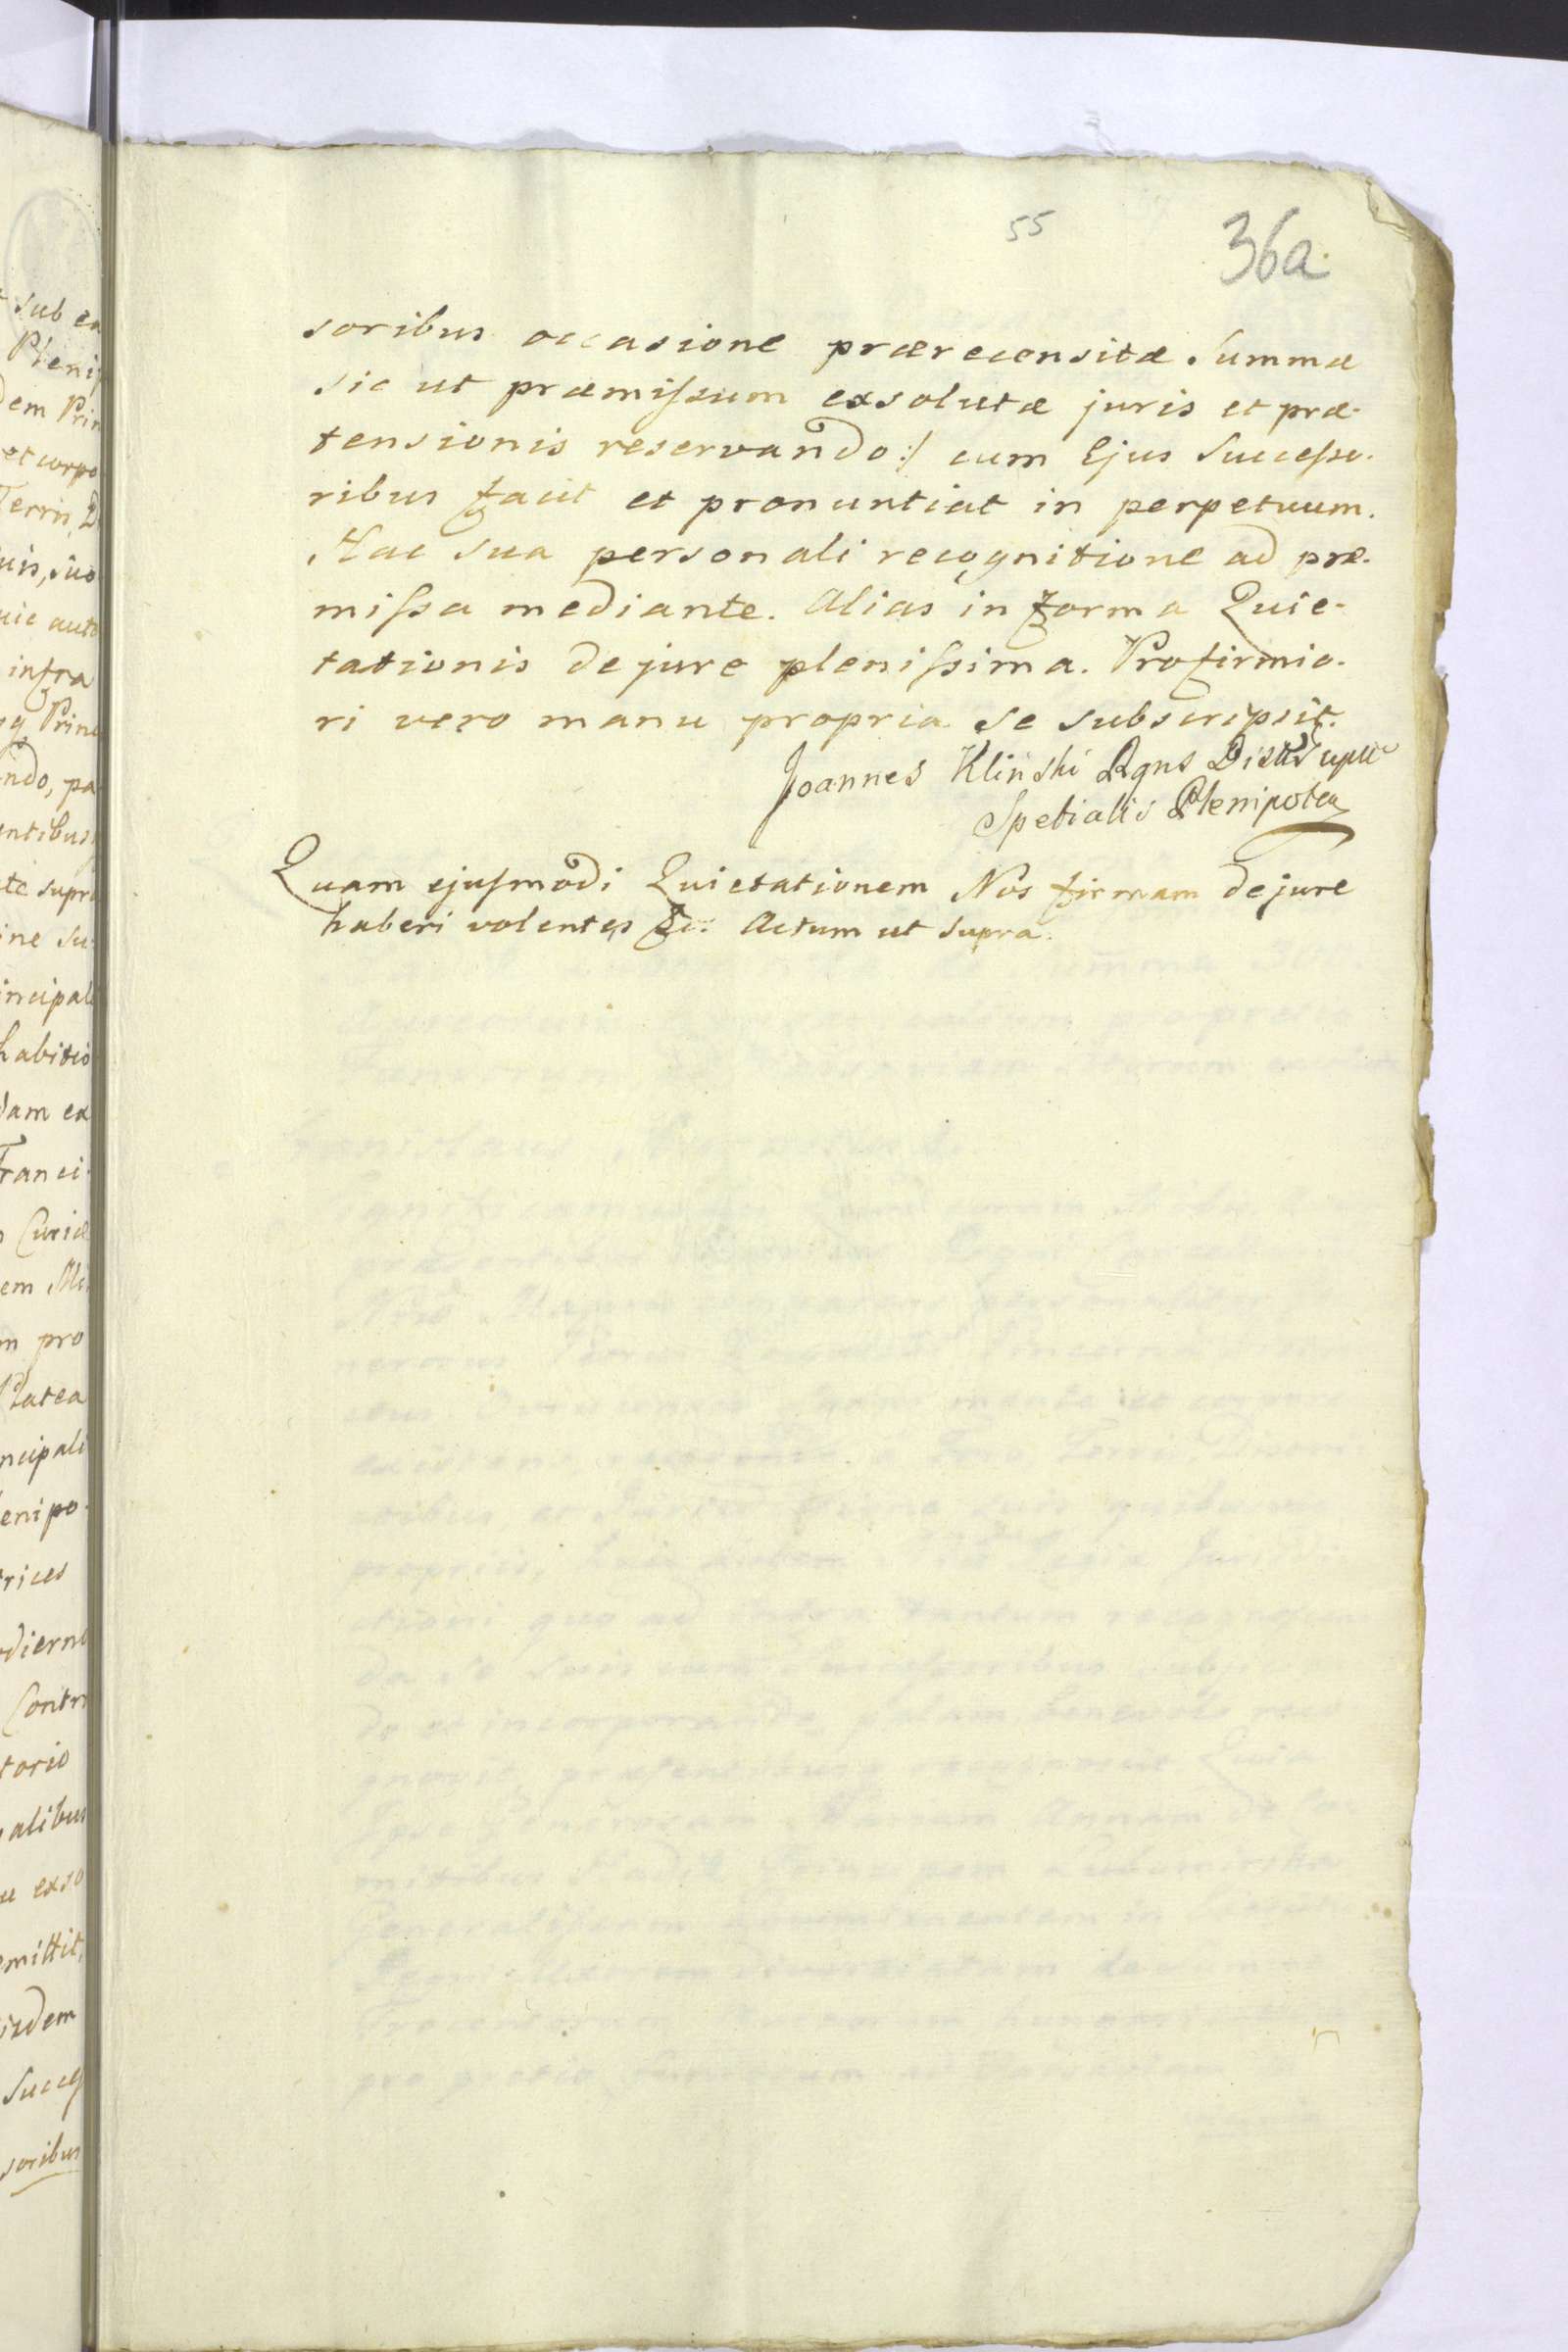 55
36a
soribus occasione prærecensitæ Summæ
sic ut præmissum exsolutæ juris et præ-
tensionis reservando :/ cum Ejus Successo-
ribus facit et pronuntiat in perpetuum.
Hac sua personali recognitione ad præ-
missa mediante. Alias in forma Quie-
tationis de jure plenissima. Profirmio-
ri vero manu propria se subscripsit.
Joannes Klinski
Spetialis Plenipoten
Quam ejusmodi Quietationem Nos firmam de jure
haberi volentes &c: Actum ut supra.
sub ea
Pleni
dem Prin
et corpo
Terris, D
suo
infra
Prin
ndo, pa
ntibus
supra
ine su-
incipali
habitio
dam ex
Franci-
Curiæ
em
m pro
Platea
ncipali
lenipo-
rices
dierno
Contra
torio
alibus
exso
mittit,
isdem
Success
soribus